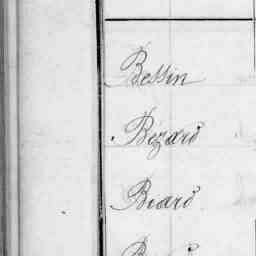 Bessin
Bézard
Biard